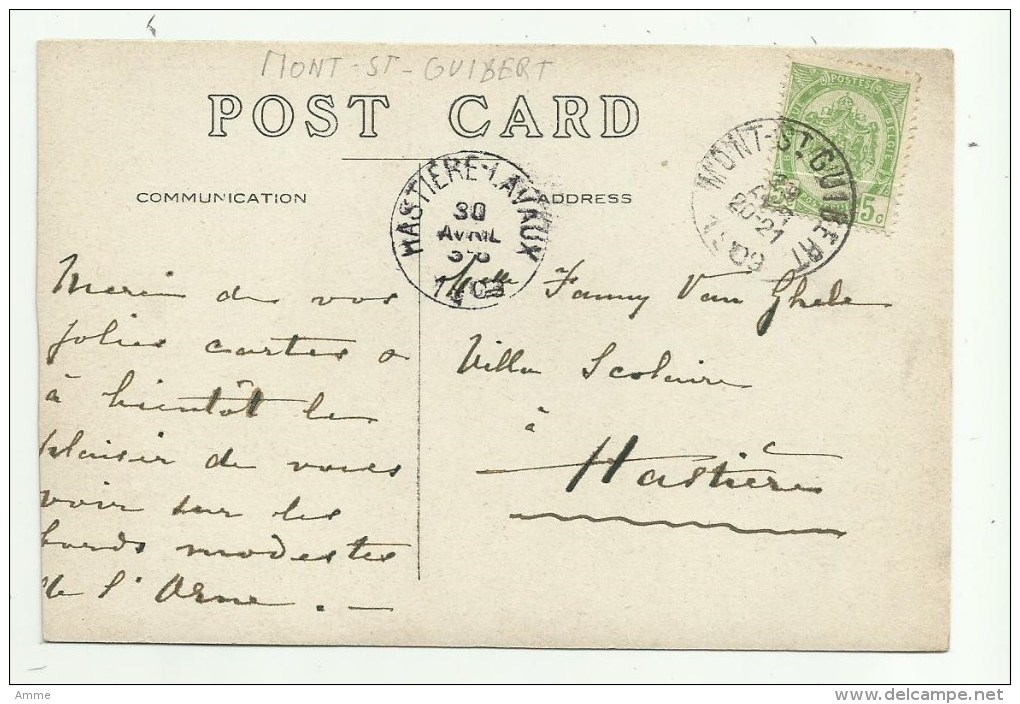 MONT-ST-GUIBERT
POST CARD
COMMUNICATION
ADDRESS
POSTES
5c
MONT-ST-GUIBERT
29
20-21
HASTIÈRE-LAVAUX
30
AVRIL
Merci de vos
jolies cartes
à bientôt le
plaisir de vous
voir sur les
bords modestes
de l'Orne. —
Melle Fanny Van Ghele
Villa Scolaire
à
Hastière
Amme
www.delcampe.net